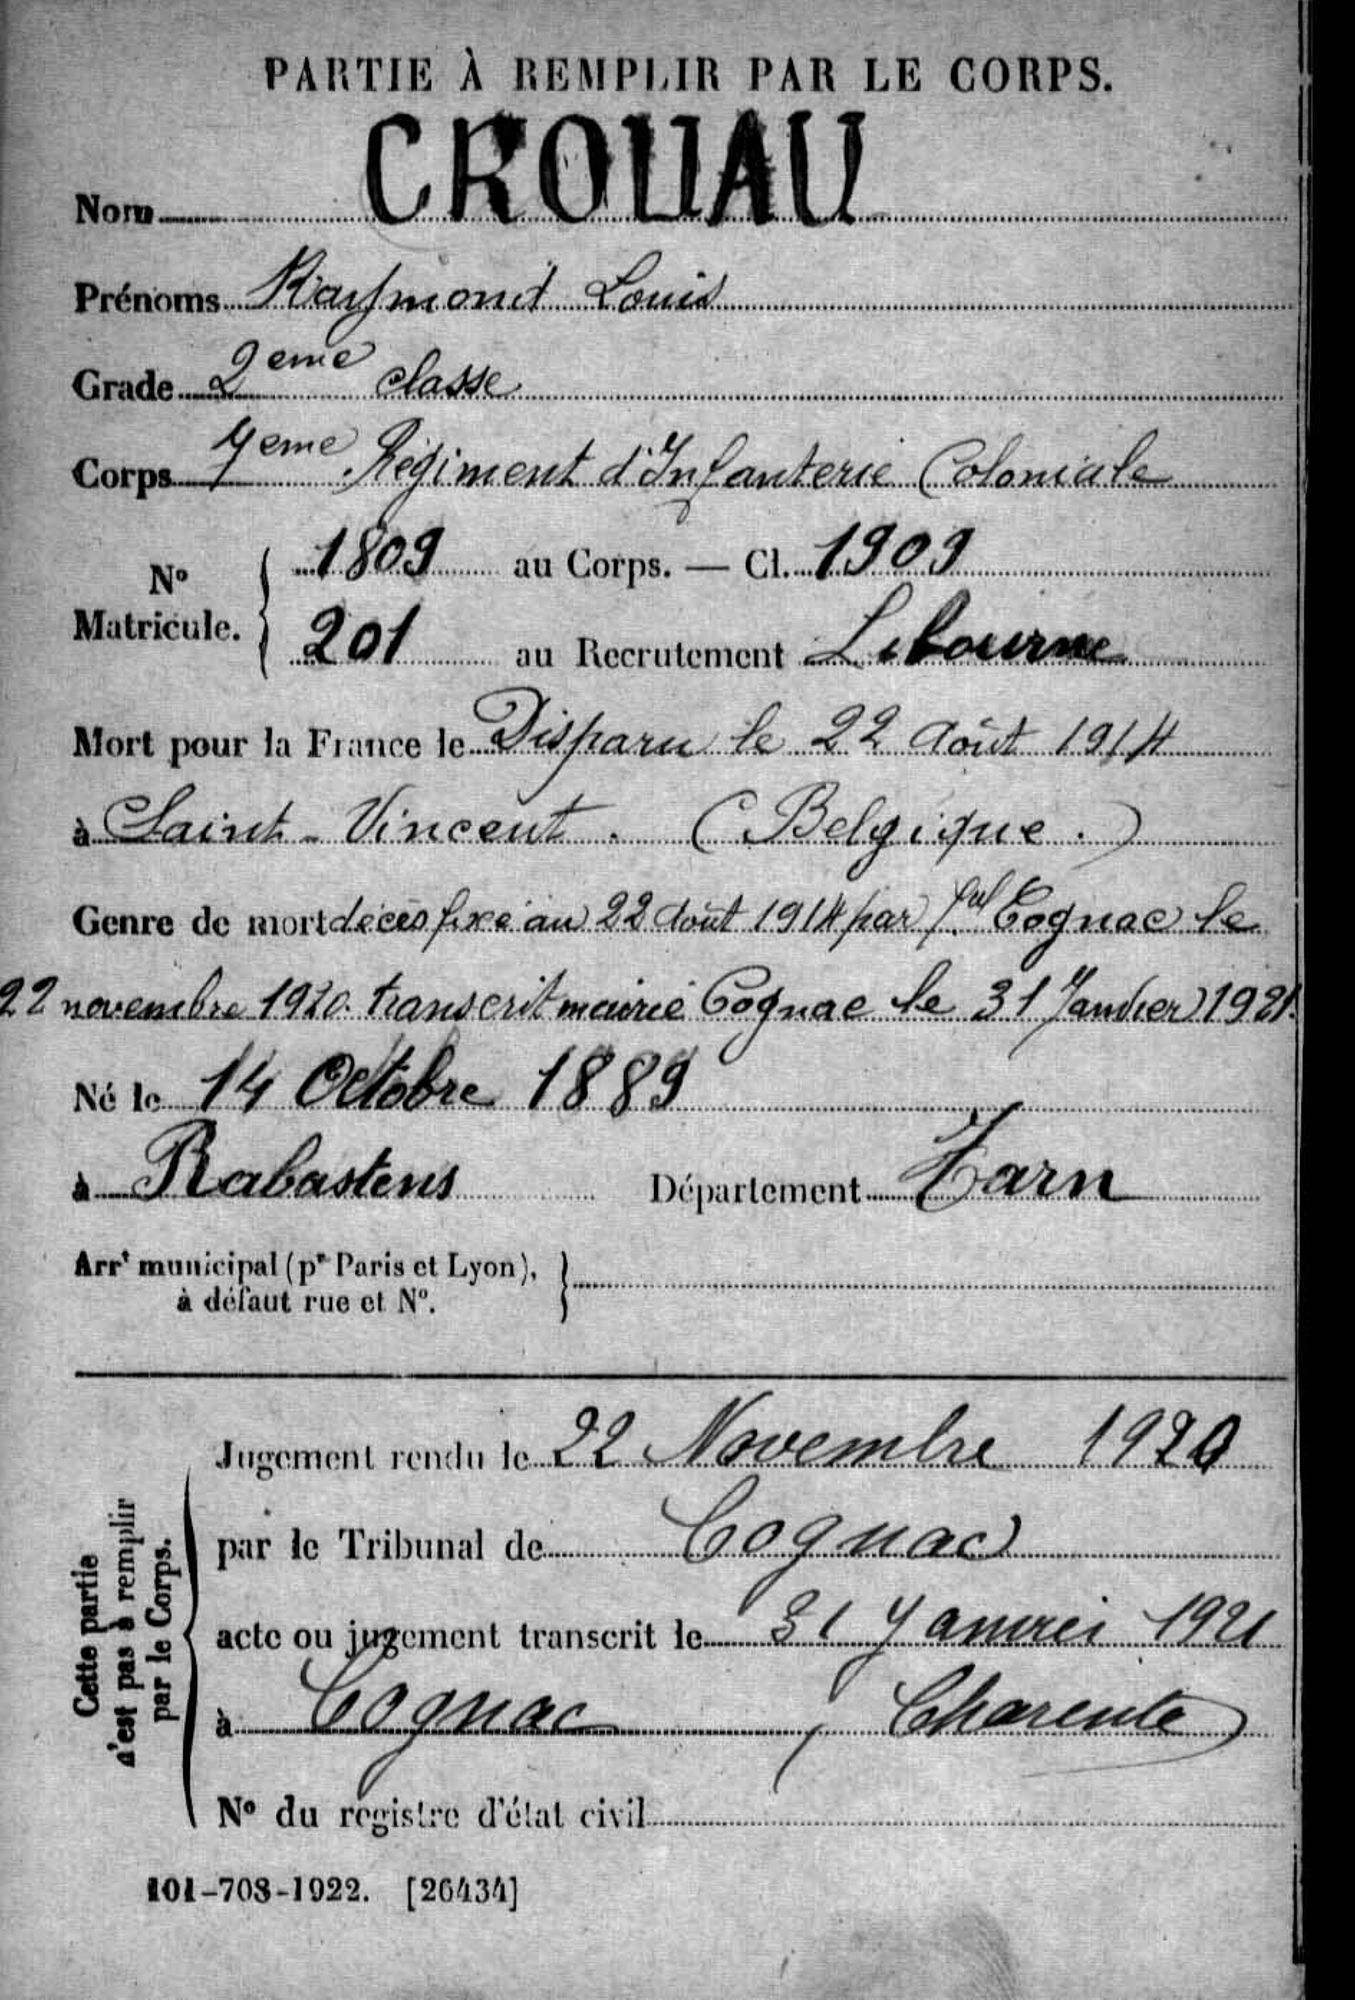 PARTIE À REMPLIR PAR LE CORPS.
Nom CROUAU
Prénoms Raymond Louis
Grade 2eme classe
Corps 7eme Régiment d'Infanterie Coloniale
N° Matricule. { 1809 au Corps. — Cl. 1909
201 au Recrutement Libourne
Mort pour la France le Disparu le 22 Août 1914
à Saint-Vincent. (Belgique.)
Genre de mort décès fixé au 22 Août 1914 par Cognac le
22 novembre 1920. transcrit mairie Cognac le 31 Janvier 1921.
Né le 14 Octobre 1889
à Rabastens Département Tarn
Arrt municipal (pr Paris et Lyon), }
à défaut rue et N°.
Cette partie n'est pas à remplir par le Corps. {
Jugement rendu le 22 Novembre 1920
par le Tribunal de Cognac
acte ou jugement transcrit le 31 Janvier 1921
à Cognac, Charente
N° du registre d'état civil
101-708-1922. [26434]